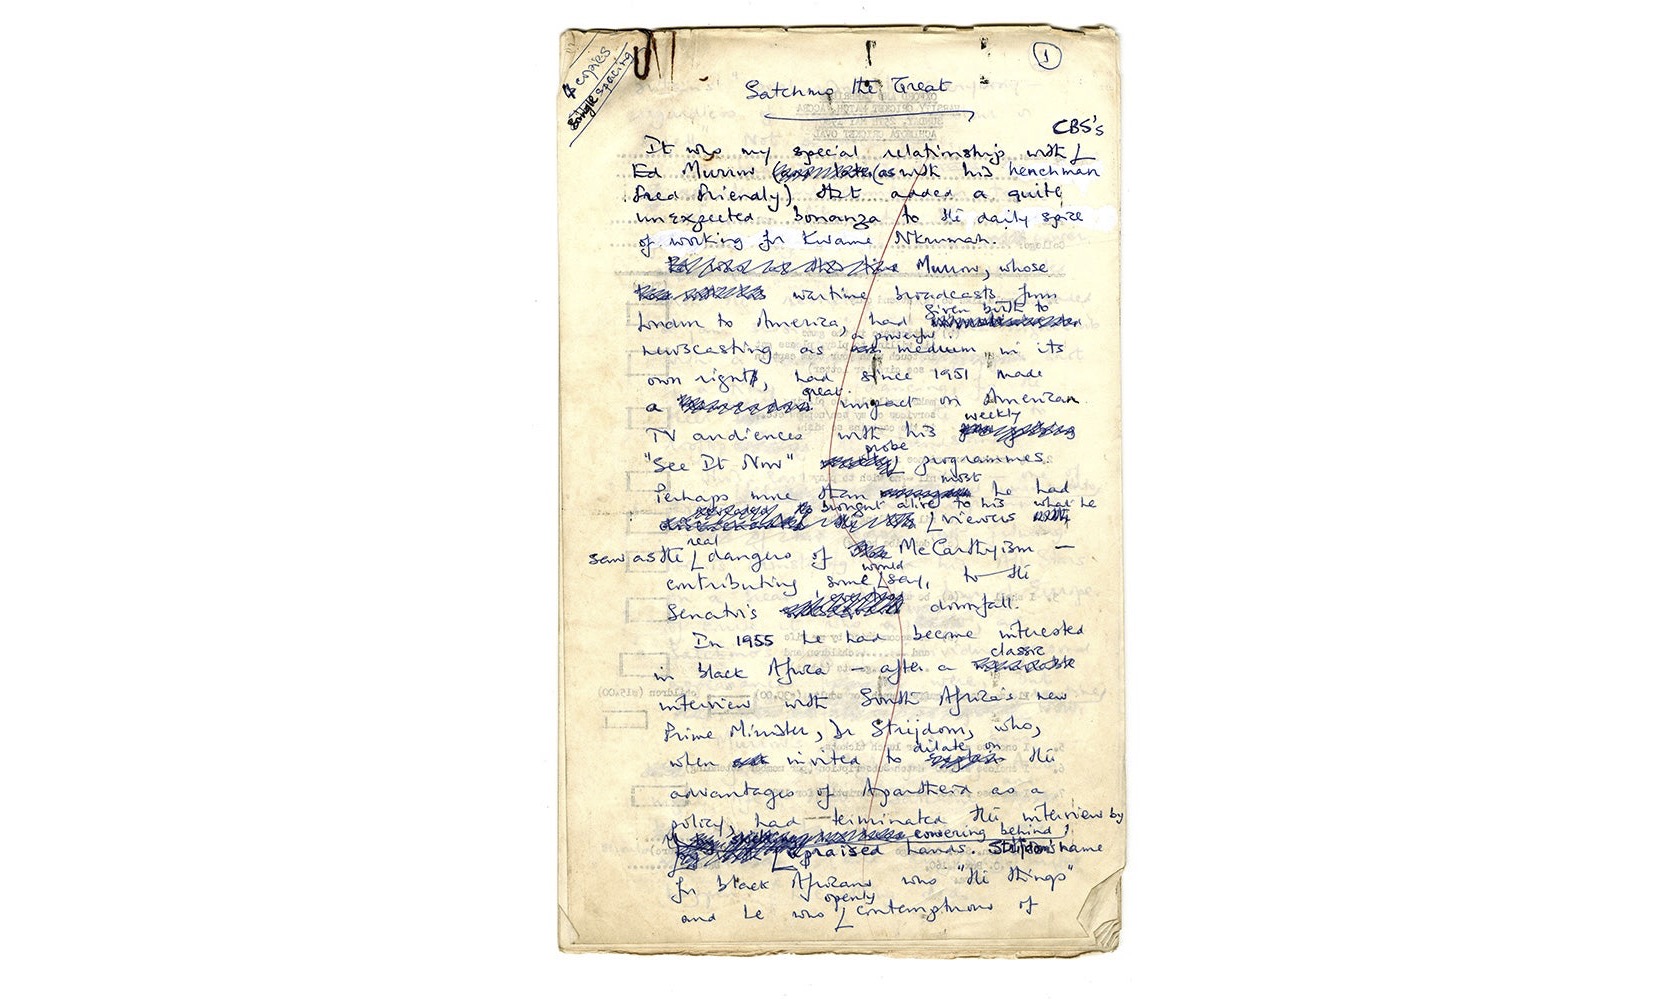 4 copies
Single spacing
1
Satchmo the Great
CBS's
It was my special relationship with
Ed Murrow (as with his henchman
Fred Friendly) that added a quite
unexpected bonanza to the daily spice
of working for Kwame Nkrumah.
Murrow, whose
wartime broadcasts from
given birth to
London to America, had
a powerful
newscasting as medium in its
own right, had since 1951 made
great
a impact on American
weekly
TV audiences with his
probe
"See It Now" programmes.
most
Perhaps more than he had
brought alive to his what he
viewers
real
saw as the dangers of McCarthyism –
would
contributing some say, to the
Senator's downfall.
In 1955 he had become interested
classic
in black Africa – after a
interview with South Africa's new
Prime Minister, Dr Strijdom, who,
dilate on
when invited to the
advantages of Apartheid as a
policy, had terminated the interview by
cowering behind
upraised hands. Strijdom's name
for black Africans was "the things"
openly
and he was contemptuous of